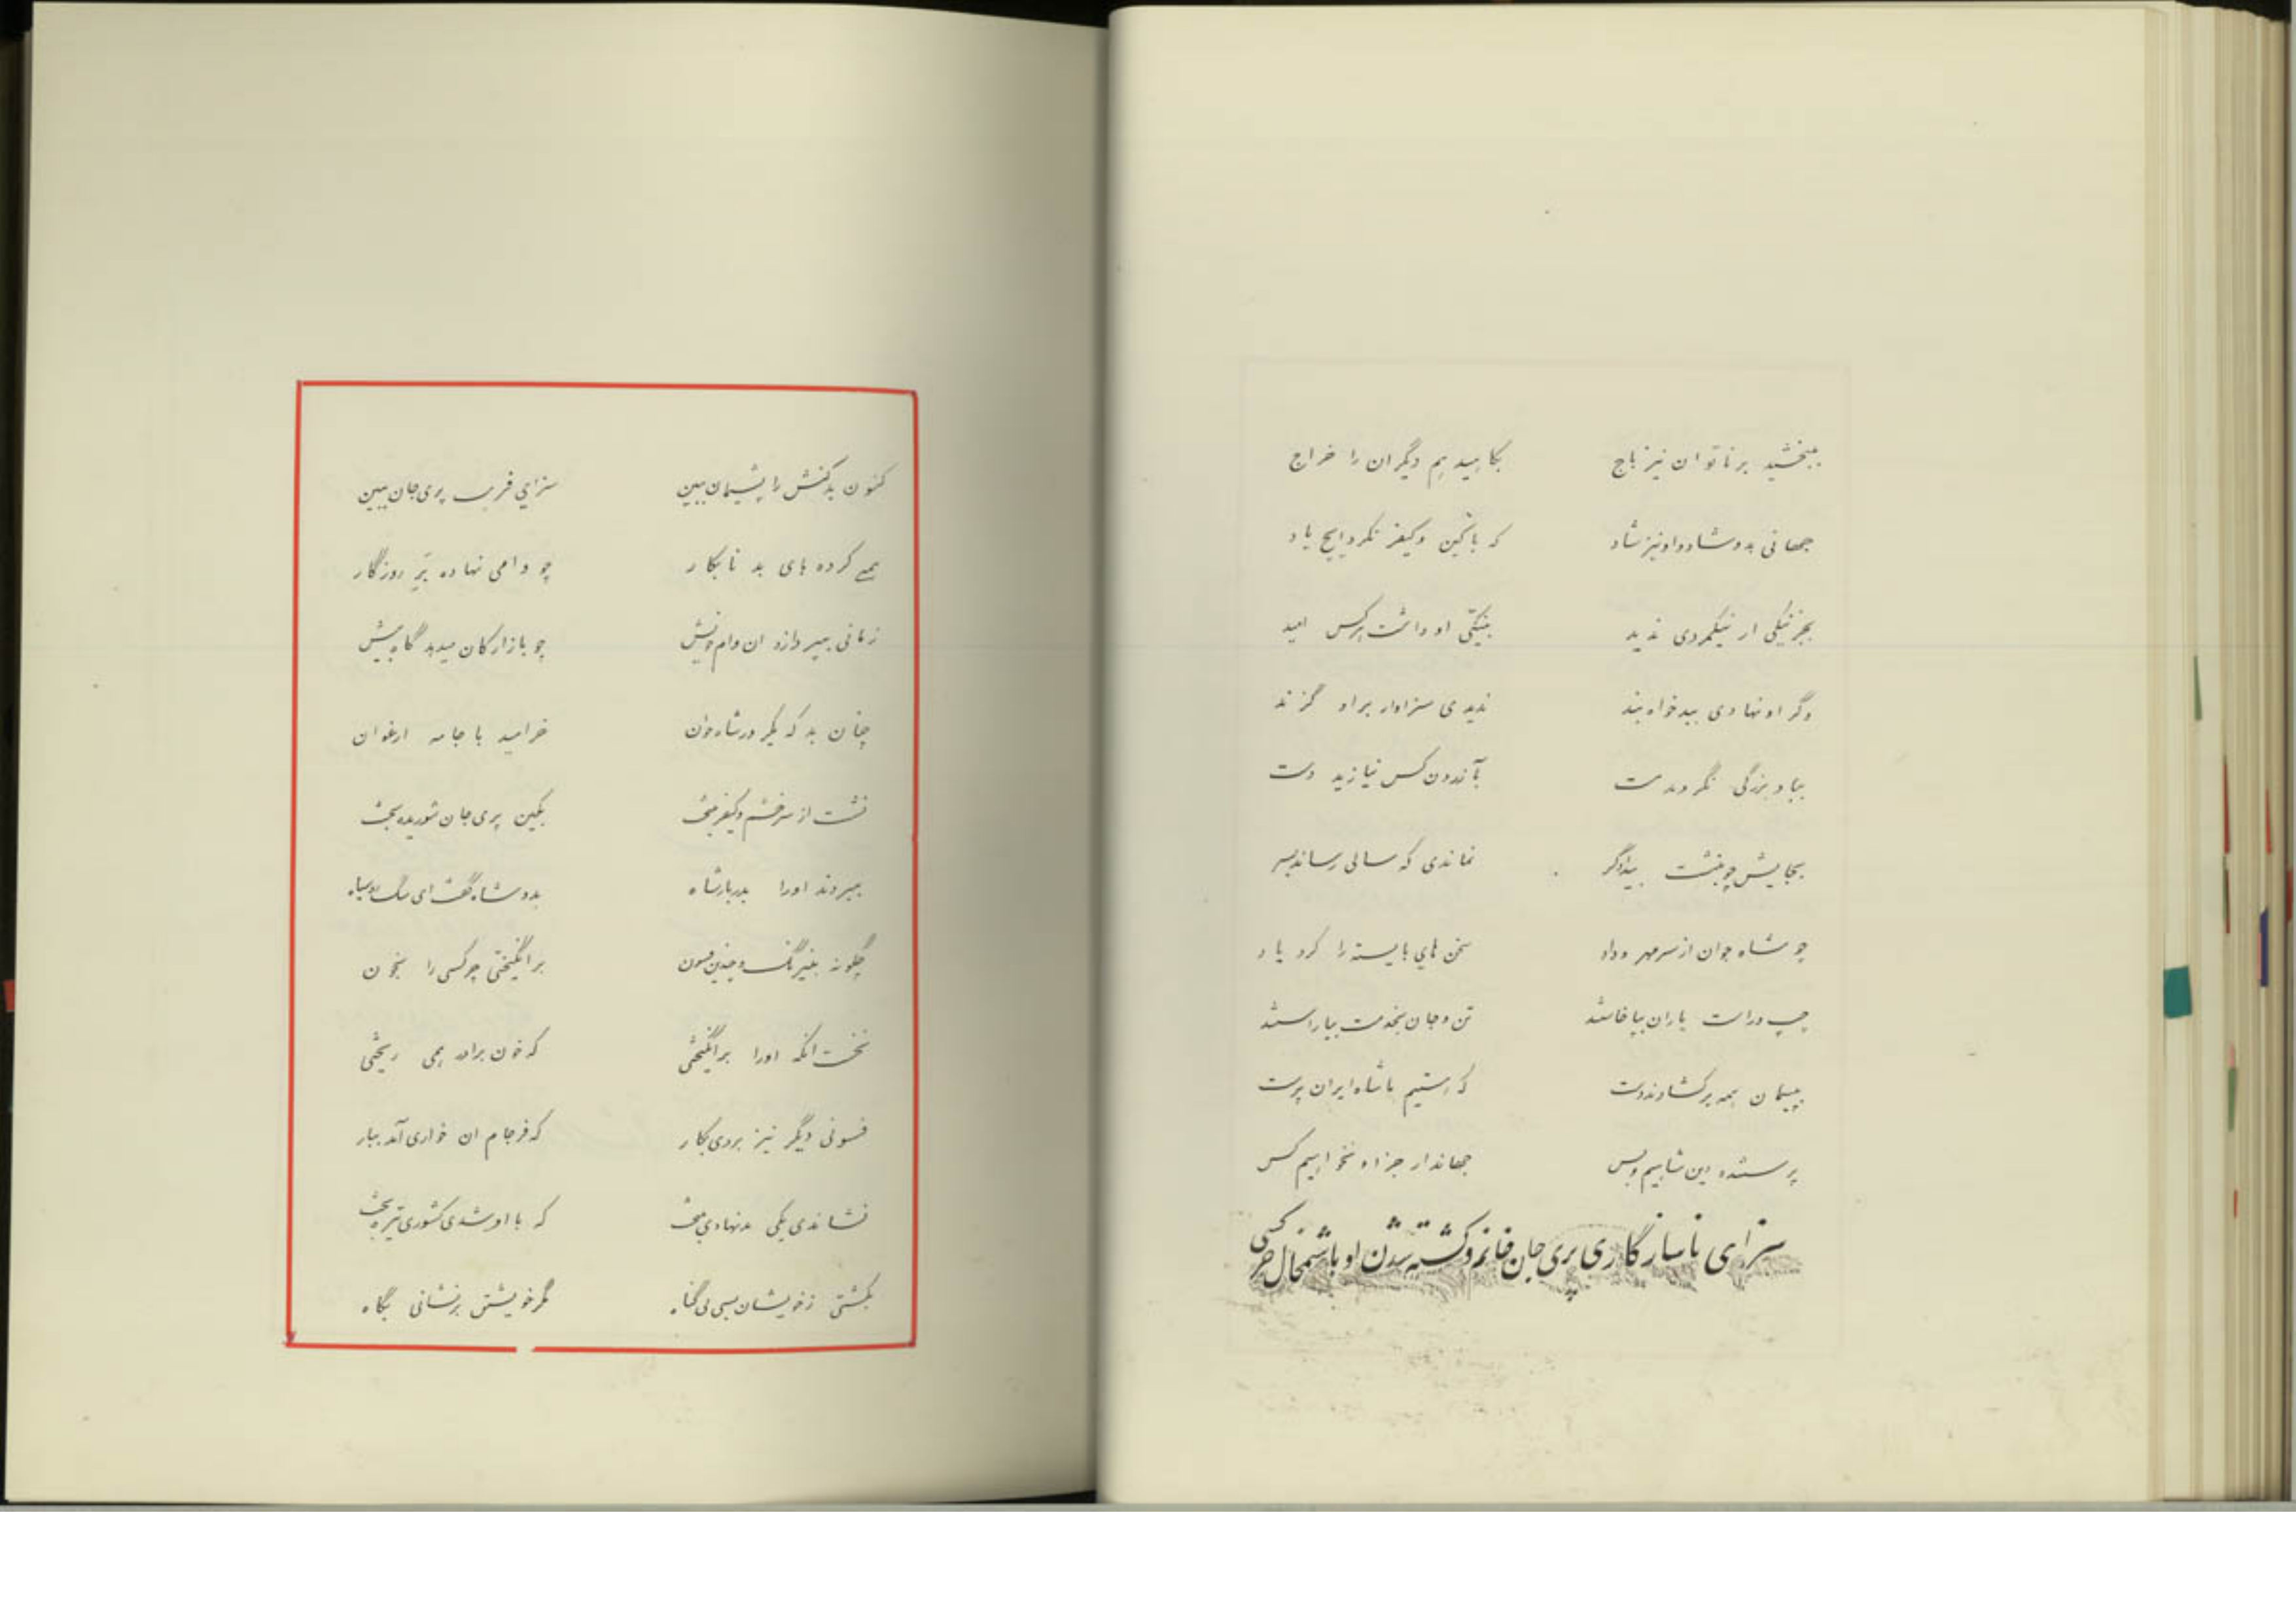 ببخشید بر ناتوان نیز باج بکاهید هم دیگران را خراج
جهانی بدو شاد و او نیز شاد که با کین و کیفر نکرد ایچ یاد
بجز نیکی از نیکمردی ندید بنیکی او داشت هرکس امید
وگر او نهادی ببدخواه بند ندیدی سزاوار بر او گزند
بیاد بزرگی نگردید مست بآزردن کس نیازید دست
بجایش چو بنشست بیدادگر نماندی که سالی رساند بسر
چو شاه جوان از سر مهر و داد سخن های بایسته را کرد یاد
چپ و راست یاران بپا خاستند تن و جان بخدمت بیاراستند
به پیمان همه برگشادند دست که هستیم با شاه ایران پرست
پرستنده این شاهیم و بس جهاندار جز او نخواهیم کس
سزای ناسازگاری پری جان خانم و کشته شدن او با شمخال چرکسی
کنون بدکنش را پشیمان ببین سزای فریب پری جان ببین
همه کرده های بد نابکار چو وامی نهاده بر روزگار
زمانی بپردازد ان وام خویش چو بازارکان میدهد گاه پیش
چنان بد که یکروز شاه جوان خرامید با جامه ارغوان
نشست از سر خشم و کیفر بتخت بکین پری جان شوریده بخت
ببردند اورا بدربار شاه بدو شاه گفت ای سگ روسیاه
چگونه بنیرنگ و چندین فسون برانگیختی چرکسی را بخون
نخست انکه اورا برانگیختی که خون برادر همی ریختی
فسونی دیگر نیز بردی بکار که فرجام ان خواری آمد ببار
نشاندی یکی بدنهادی بتخت که با او شدی کشوری تیره بخت
بکشتی ز خویشان بسی بی گناه مگر خویشتن برنشانی بگاه